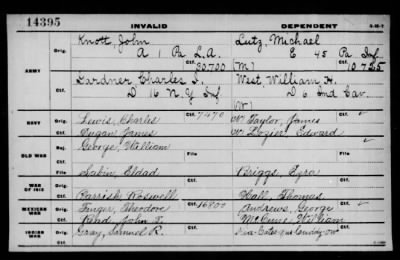 14395
INVALID
DEPENDENT
ARMY
Orig.
Knott, John
A 1 Pa L.A.
Ctf.
30.700
Gardner Charles
D 16 N.Y Inf
Lutz, Michael
E 45 Pa Inf
(M)
West, William H.
D 6 Ind Cav.
(W)
NAVY
Orig.
Lewis, Charles
Ctf. 7470
Dugan James
W Taylor, James
W Lozier Edward
OLD WAR
Rej.
George, William
File
Sabin, Eldad
Briggs, Ezra
WAR OF 1812
Orig.
Ctf.
Parrish Roswell
Hall, Thomas
MEXICAN WAR
Orig.
Finger, Theodore
Ctf. 16800
Andrews, George
Ctf.
McCune William
INDIAN WAR
Orig.
Gray, Samuel R.
Ctf.